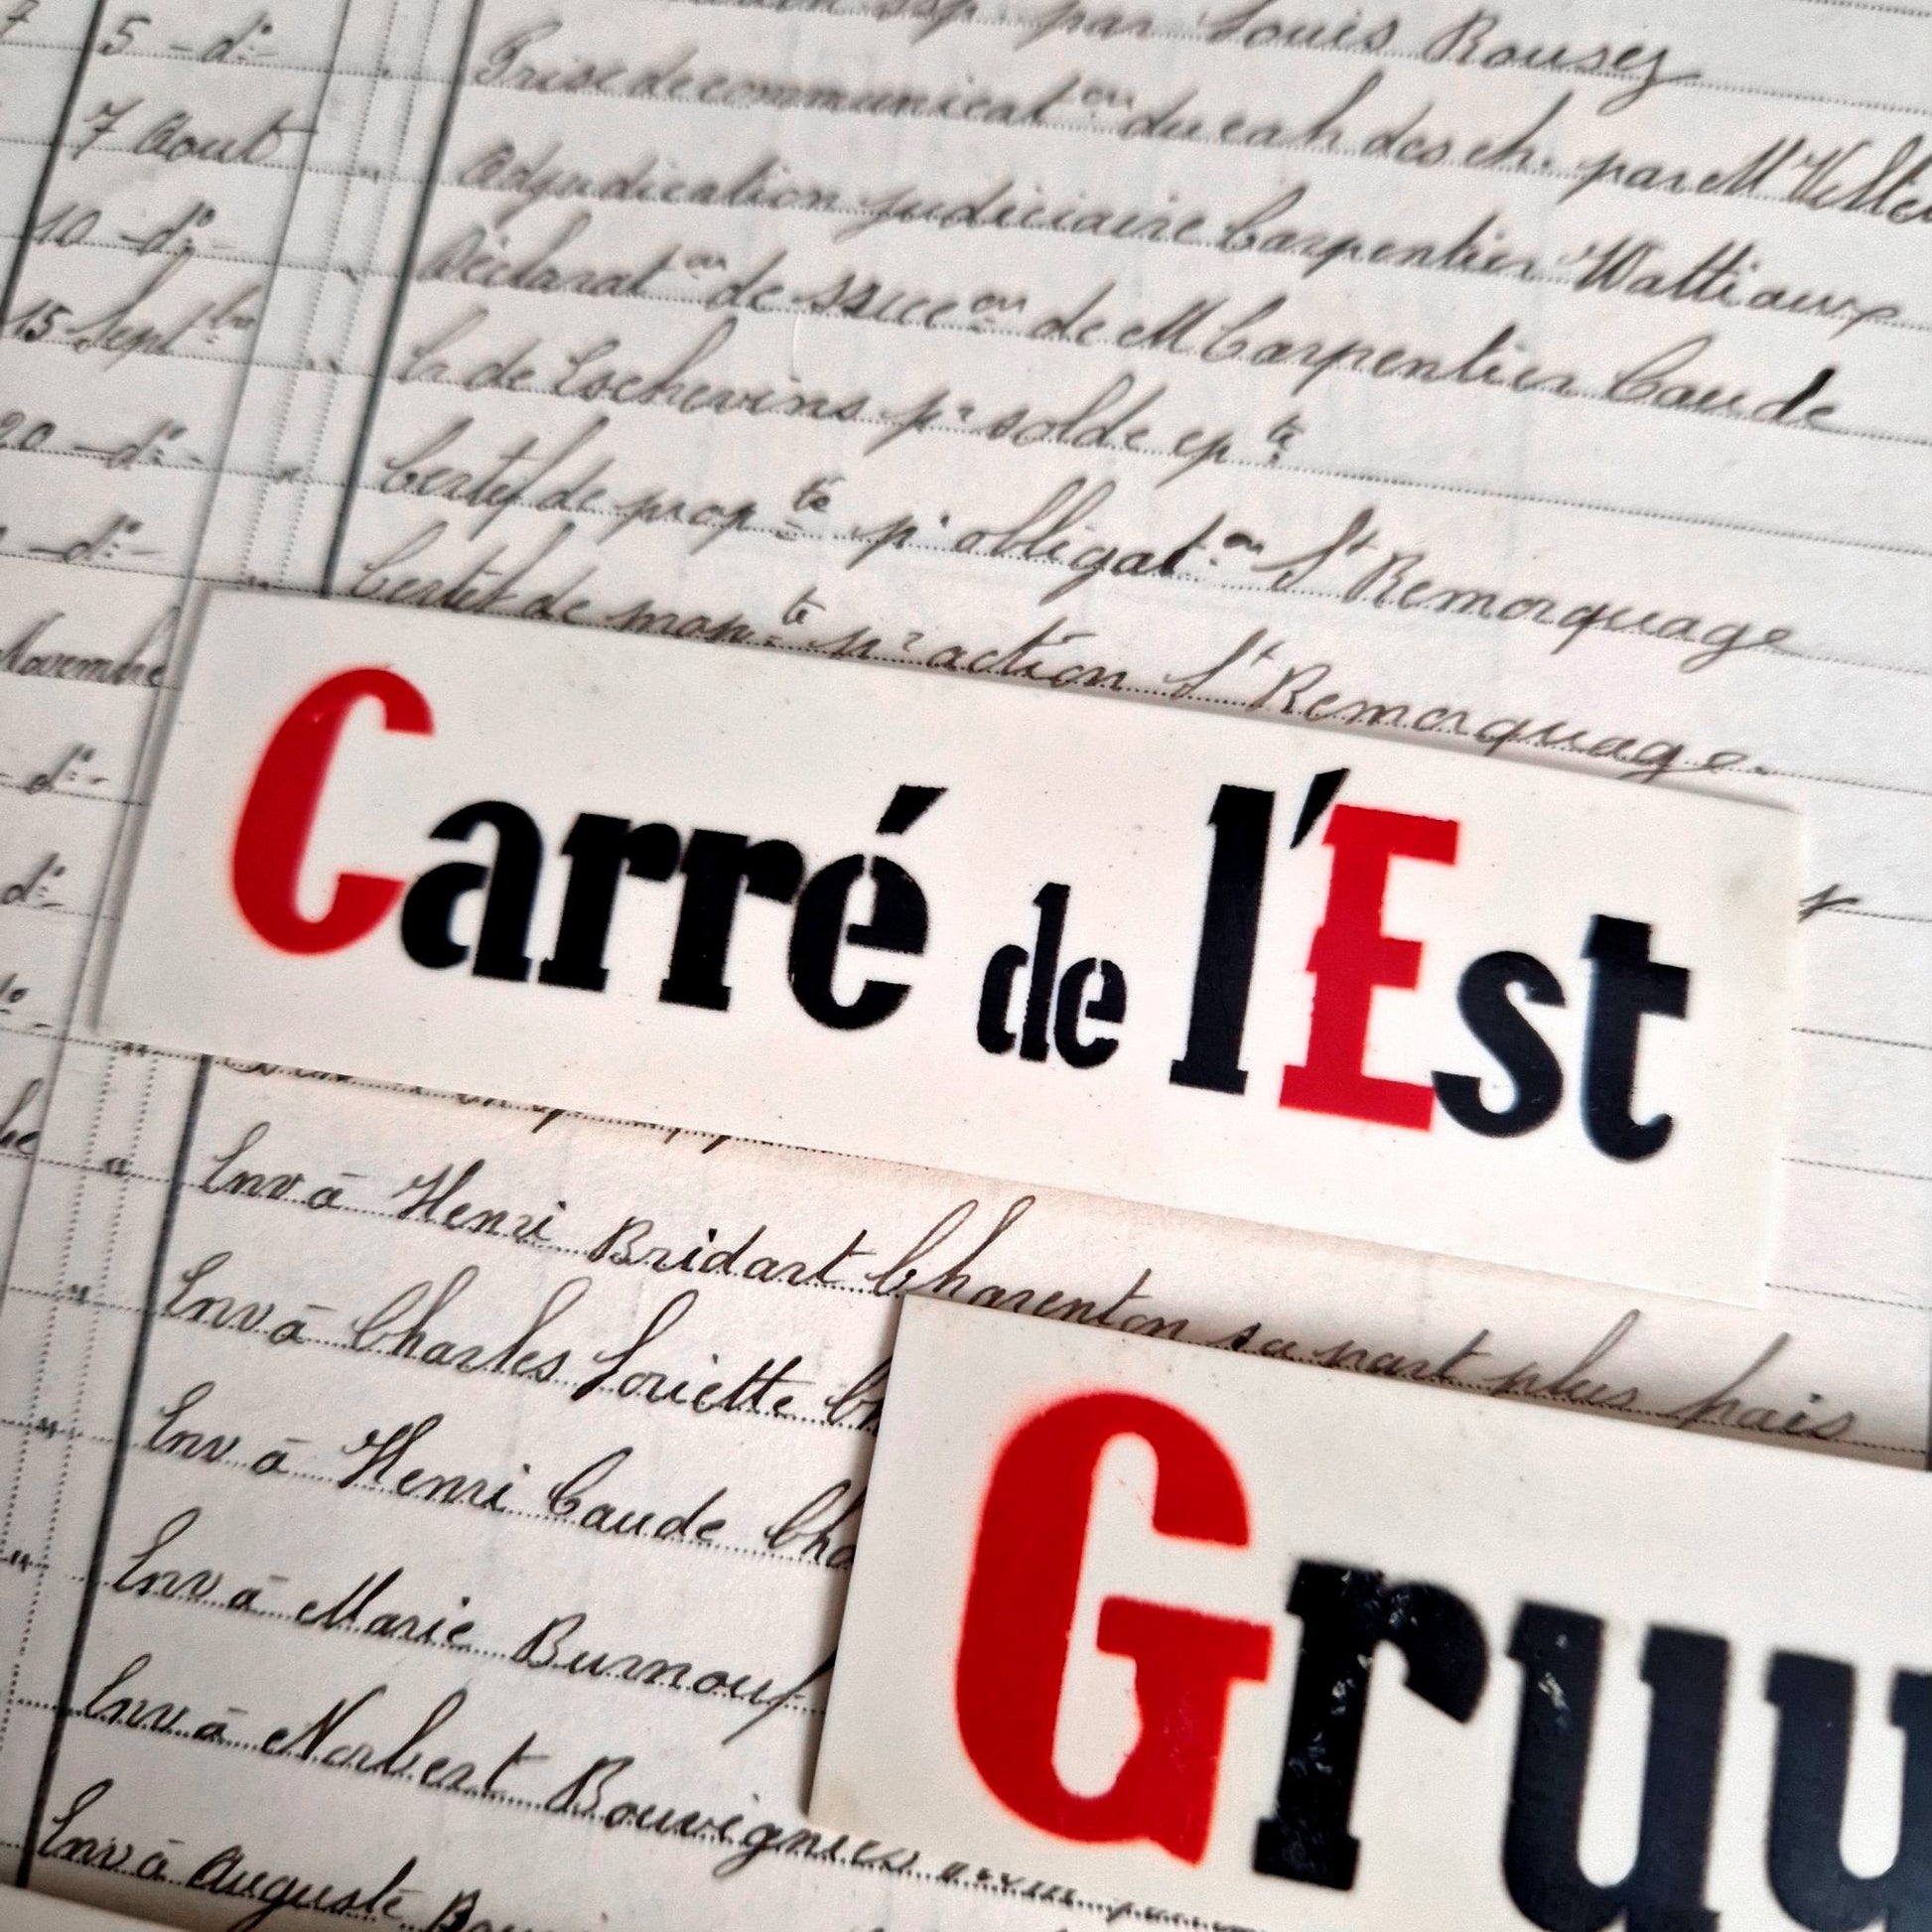 par Louis Rousez
5 - do -
Prise de communicaton du cah des ch. par M
7 Aout
Adjudication judiciaire Carpentier Wattiaux
10 - do -
Déclaraton de succon de M Carpentier Caude
15 Septbre
de Eschevins pr solde cpte
20 - do -
Certif de propté pr obligaton St Remorquage
- do -
Certif de propté pr action St Remorquage
Novembre
- do -
Carré de l'Est
do -
Env à Henri Bridart Charenton sa part plus pais
Env à Charles Loriette Ch
Env à Henri Caude Cha
Gruu
Env à Marie Burnouf
Env à Norbert Bouvignies
Env à Auguste